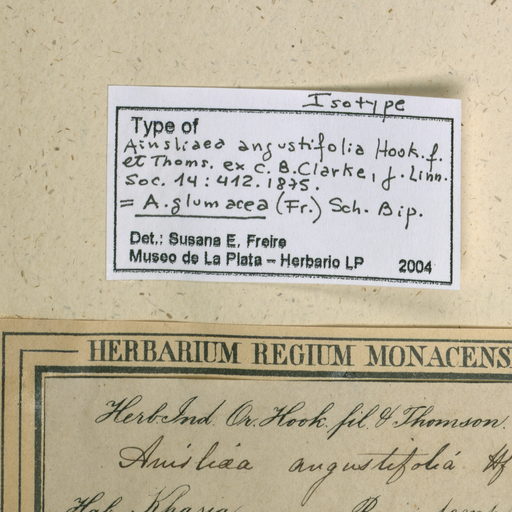 Isotype
Type of
Ainsliaea angustifolia Hook. f.
et Thoms. ex C. B. Clarke, J. Linn.
Soc. 14: 412. 1875.
= A. glumacea (Fr.) Sch. Bip.
Det.: Susana E. Freire
Museo de La Plata – Herbario LP 2004
HERBARIUM REGIUM MONACENS
Herb. Ind. Or. Hook. fil & Thomson.
Ainsliæa angustifolia Hf
Hab. Khasia